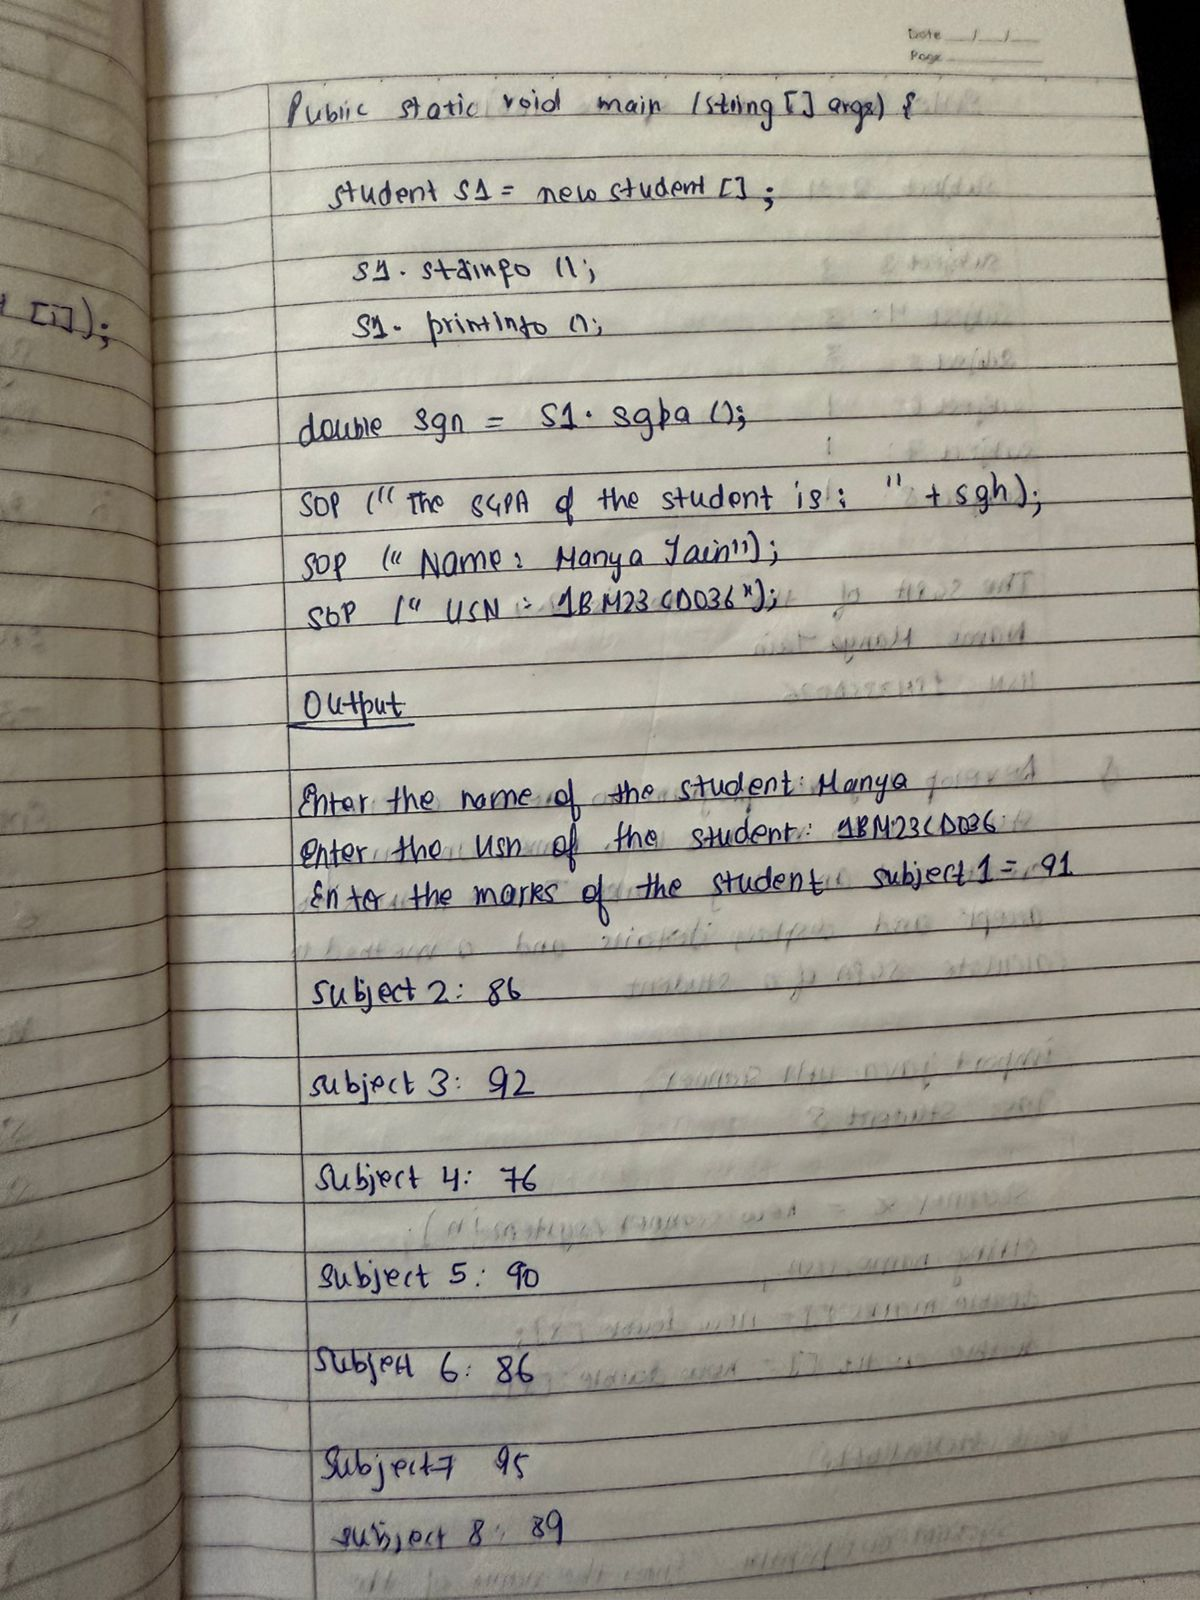 Date __/__/__
Page
Public static void main (string [] args) {
student S1 = new student [] ;
S1. stdinfo ();
S1. printinfo ();
[i]);
double sgn = S1. sgpa ();
SOP (" The SGPA of the student is : " + sgh);
SOP (" Name : Manya Jain");
SOP (" USN : 1BM23CD036");
Output
Enter the name of the student: Manya
Enter the usn of the student: 1BM23CD036
Enter the marks of the student subject 1 = 91
subject 2: 86
subject 3: 92
subject 4: 76
subject 5: 90
subject 6: 86
subject 7 95
subject 8: 89